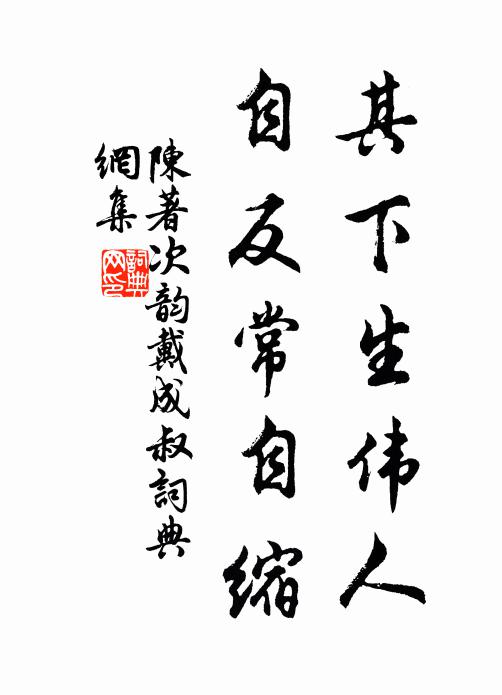 其下生伟人
自反常自缩
陳著次韵戴成叔詞典
網集
詞典网印